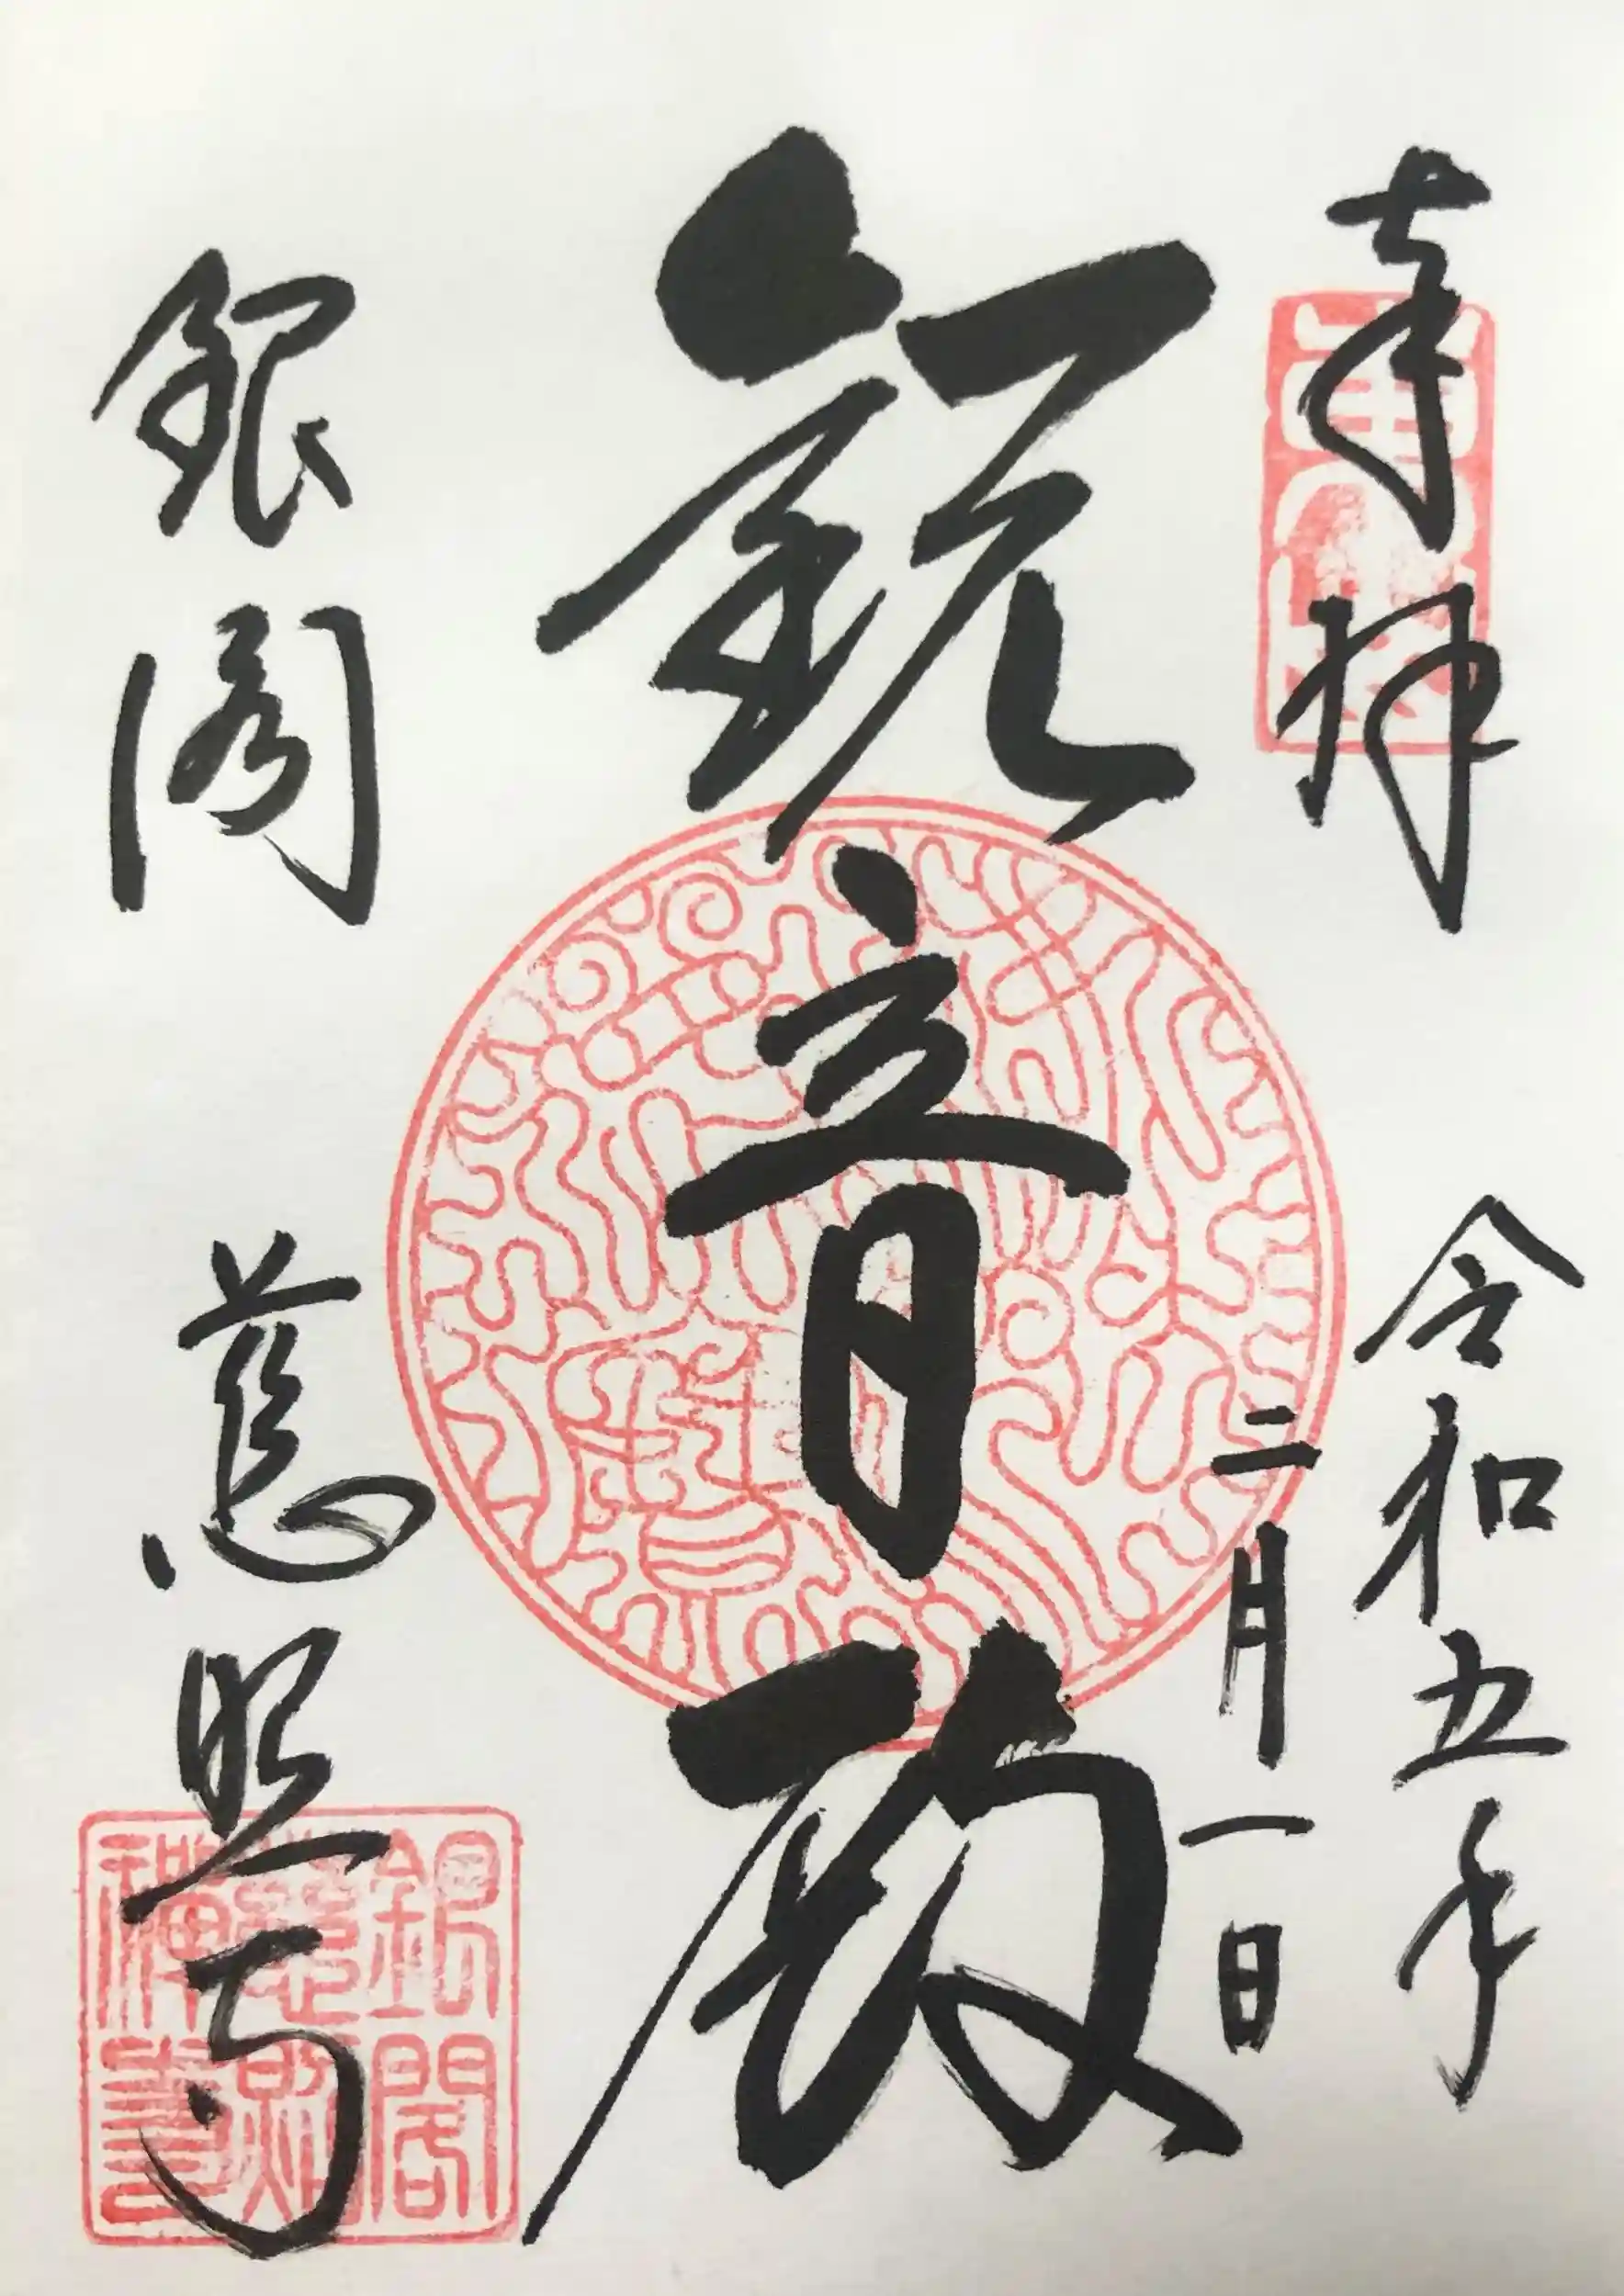 奉拝
令和五年
二月一日
観音殿
銀閣
慈照寺
銀閣
慈照
禪寺